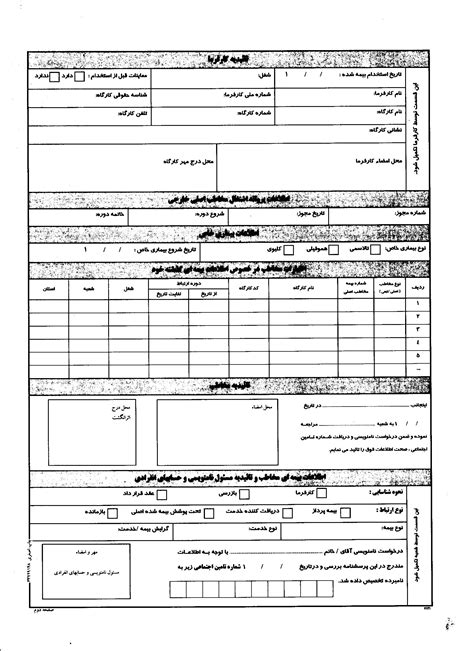 تائیدیه کارفرما
تاریخ استخدام بیمه شده : / / ۱ شغل: معاینات قبل از استخدام : دارد ندارد
نام کارفرما: شماره ملی کارفرما: شناسه حقوقی کارگاه:
نام کارگاه: شماره کارگاه: تلفن کارگاه:
نشانی کارگاه:
محل امضاء کارفرما: محل درج مهر کارگاه:
این قسمت توسط کارفرما تکمیل شود.
اطلاعات پروانه اشتغال مخاطب اصلی خارجی
شماره مجوز: تاریخ مجوز: شروع دوره: خاتمه دوره:
اطلاعات بیماری خاص
نوع بیماری خاص: تالاسمی هموفیلی کلیوی تاریخ شروع بیماری خاص: / / ۱
اظهارات مخاطب در خصوص اطلاعات بیمه ای گذشته خود
ردیف نوع مخاطب (اصلی/تبعی) شماره بیمه مخاطب اصلی نام کارگاه کد کارگاه دوره ارتباط شغل شعبه استان
از تاریخ لغایت تاریخ
۱
۲
۳
٤
۵
...
تائیدیه مخاطب
اینجانب در تاریخ
/ / ۱ به شعبه مراجعه
نموده و ضمن درخواست نامنویسی و دریافت شماره تامین
اجتماعی ، صحت اطلاعات فوق را تائید می نمایم.
محل امضاء
محل درج
اثرانگشت
اطلاعات بیمه ای مخاطب و تائیدیه مسئول نامنویسی و حسابهای انفرادی
نحوه شناسایی : کارفرما بازرسی عقد قرار داد
نوع ارتباط : بیمه پرداز دریافت کننده خدمت تحت پوشش بیمه شده اصلی بازمانده
نوع بیمه: نوع خدمت: گرایش بیمه /خدمت:
درخواست نامنویسی آقای / خانم با توجه به اطلاعات
مندرج در این پرسشنامه بررسی و درتاریخ / / ۱ شماره تامین اجتماعی زیر به
نامبرده تخصیص داده شد.
مهر و امضاء
مسئول نامنویسی و حسابهای انفرادی
این قسمت توسط شعبه تکمیل شود.
صفحه دوم